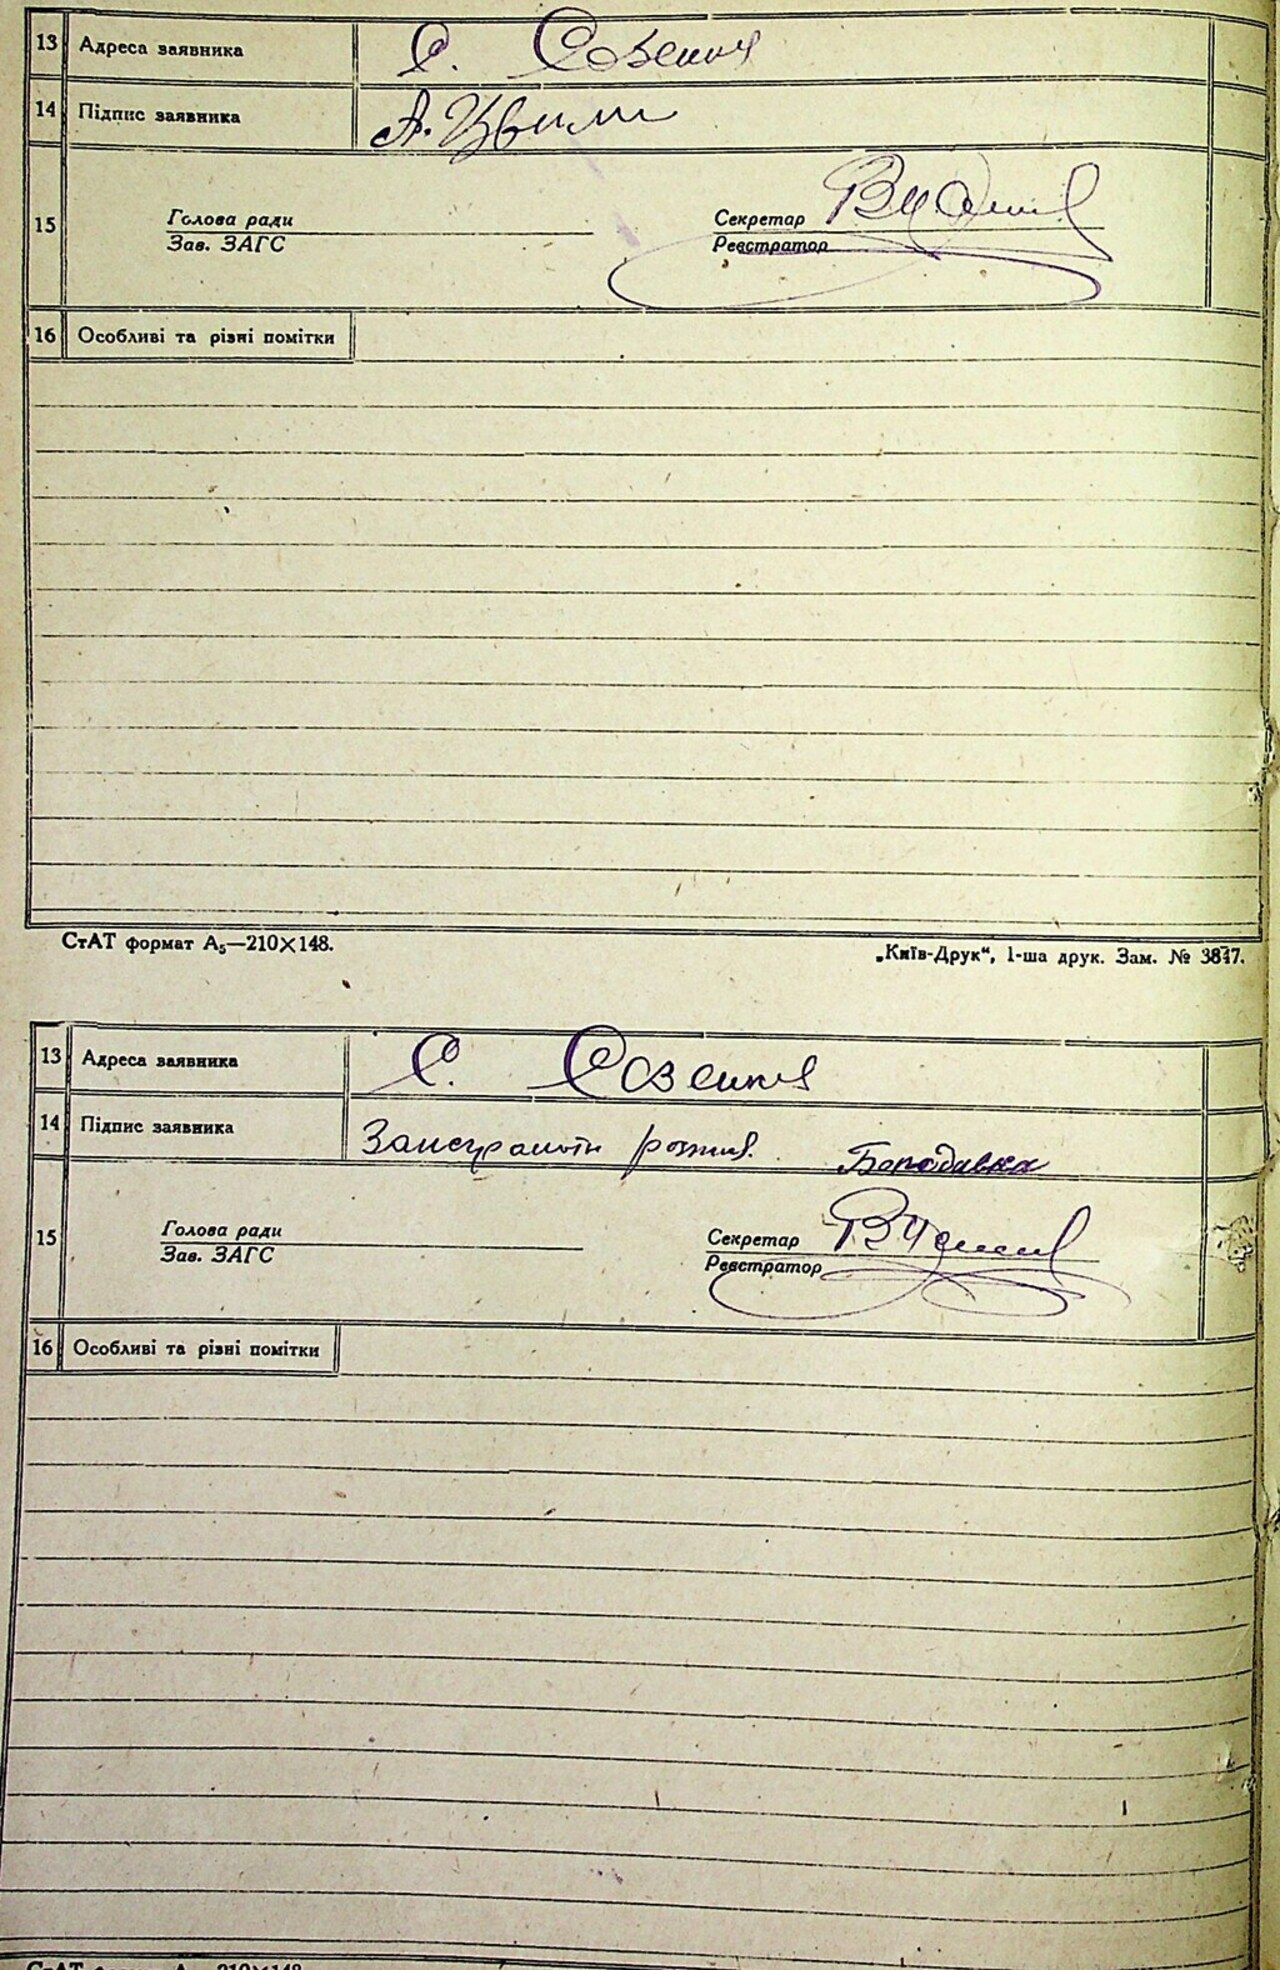 13 Адреса заявника С. Созенкя
14 Підпис заявника А. Цвили
15 Голова ради Секретар
Зав. ЗАГС Реєстратор
16 Особливі та різні помітки
СтАТ формат А₅—210×148. „Київ-Друк“, 1-ша друк. Зам. № 3847.
13 Адреса заявника С. Созенкя
14 Підпис заявника За неграмотн розпис. Бородавка
15 Голова ради Секретар
Зав. ЗАГС Реєстратор
16 Особливі та різні помітки
СтАТ формат А₅—210×148.